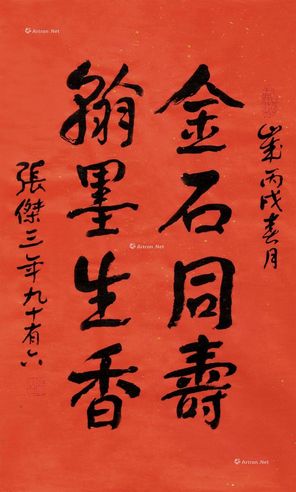 歲丙戌春月
金石同壽
翰墨生香
張傑三年九十有六
Artron.Net
Artron.Net
Artron.Net